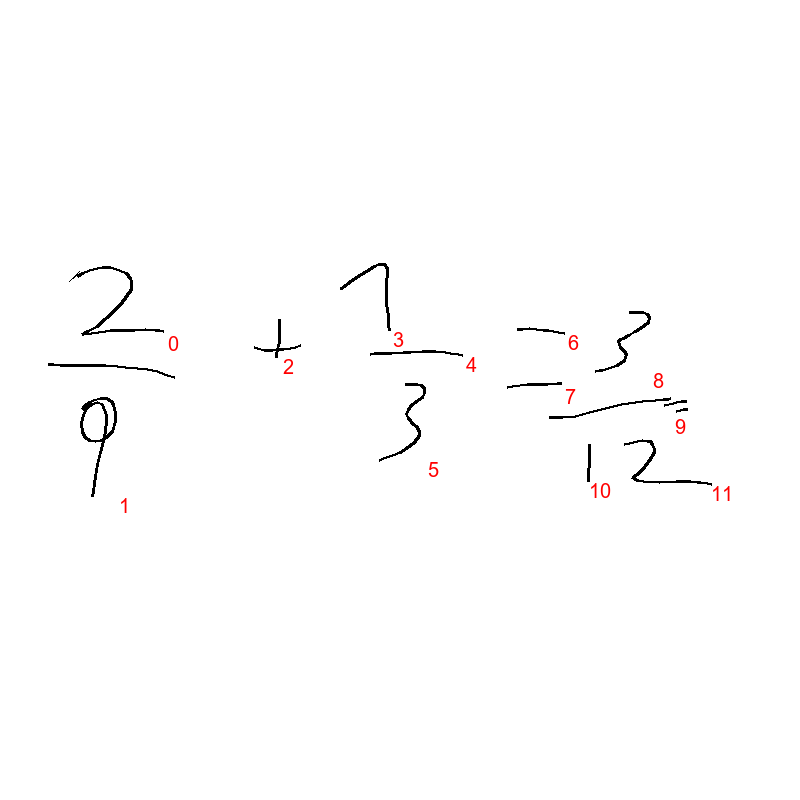 2/9 + 1/3 = 3/12
0 1 2 3 4 5 6 7 8 9 10 11